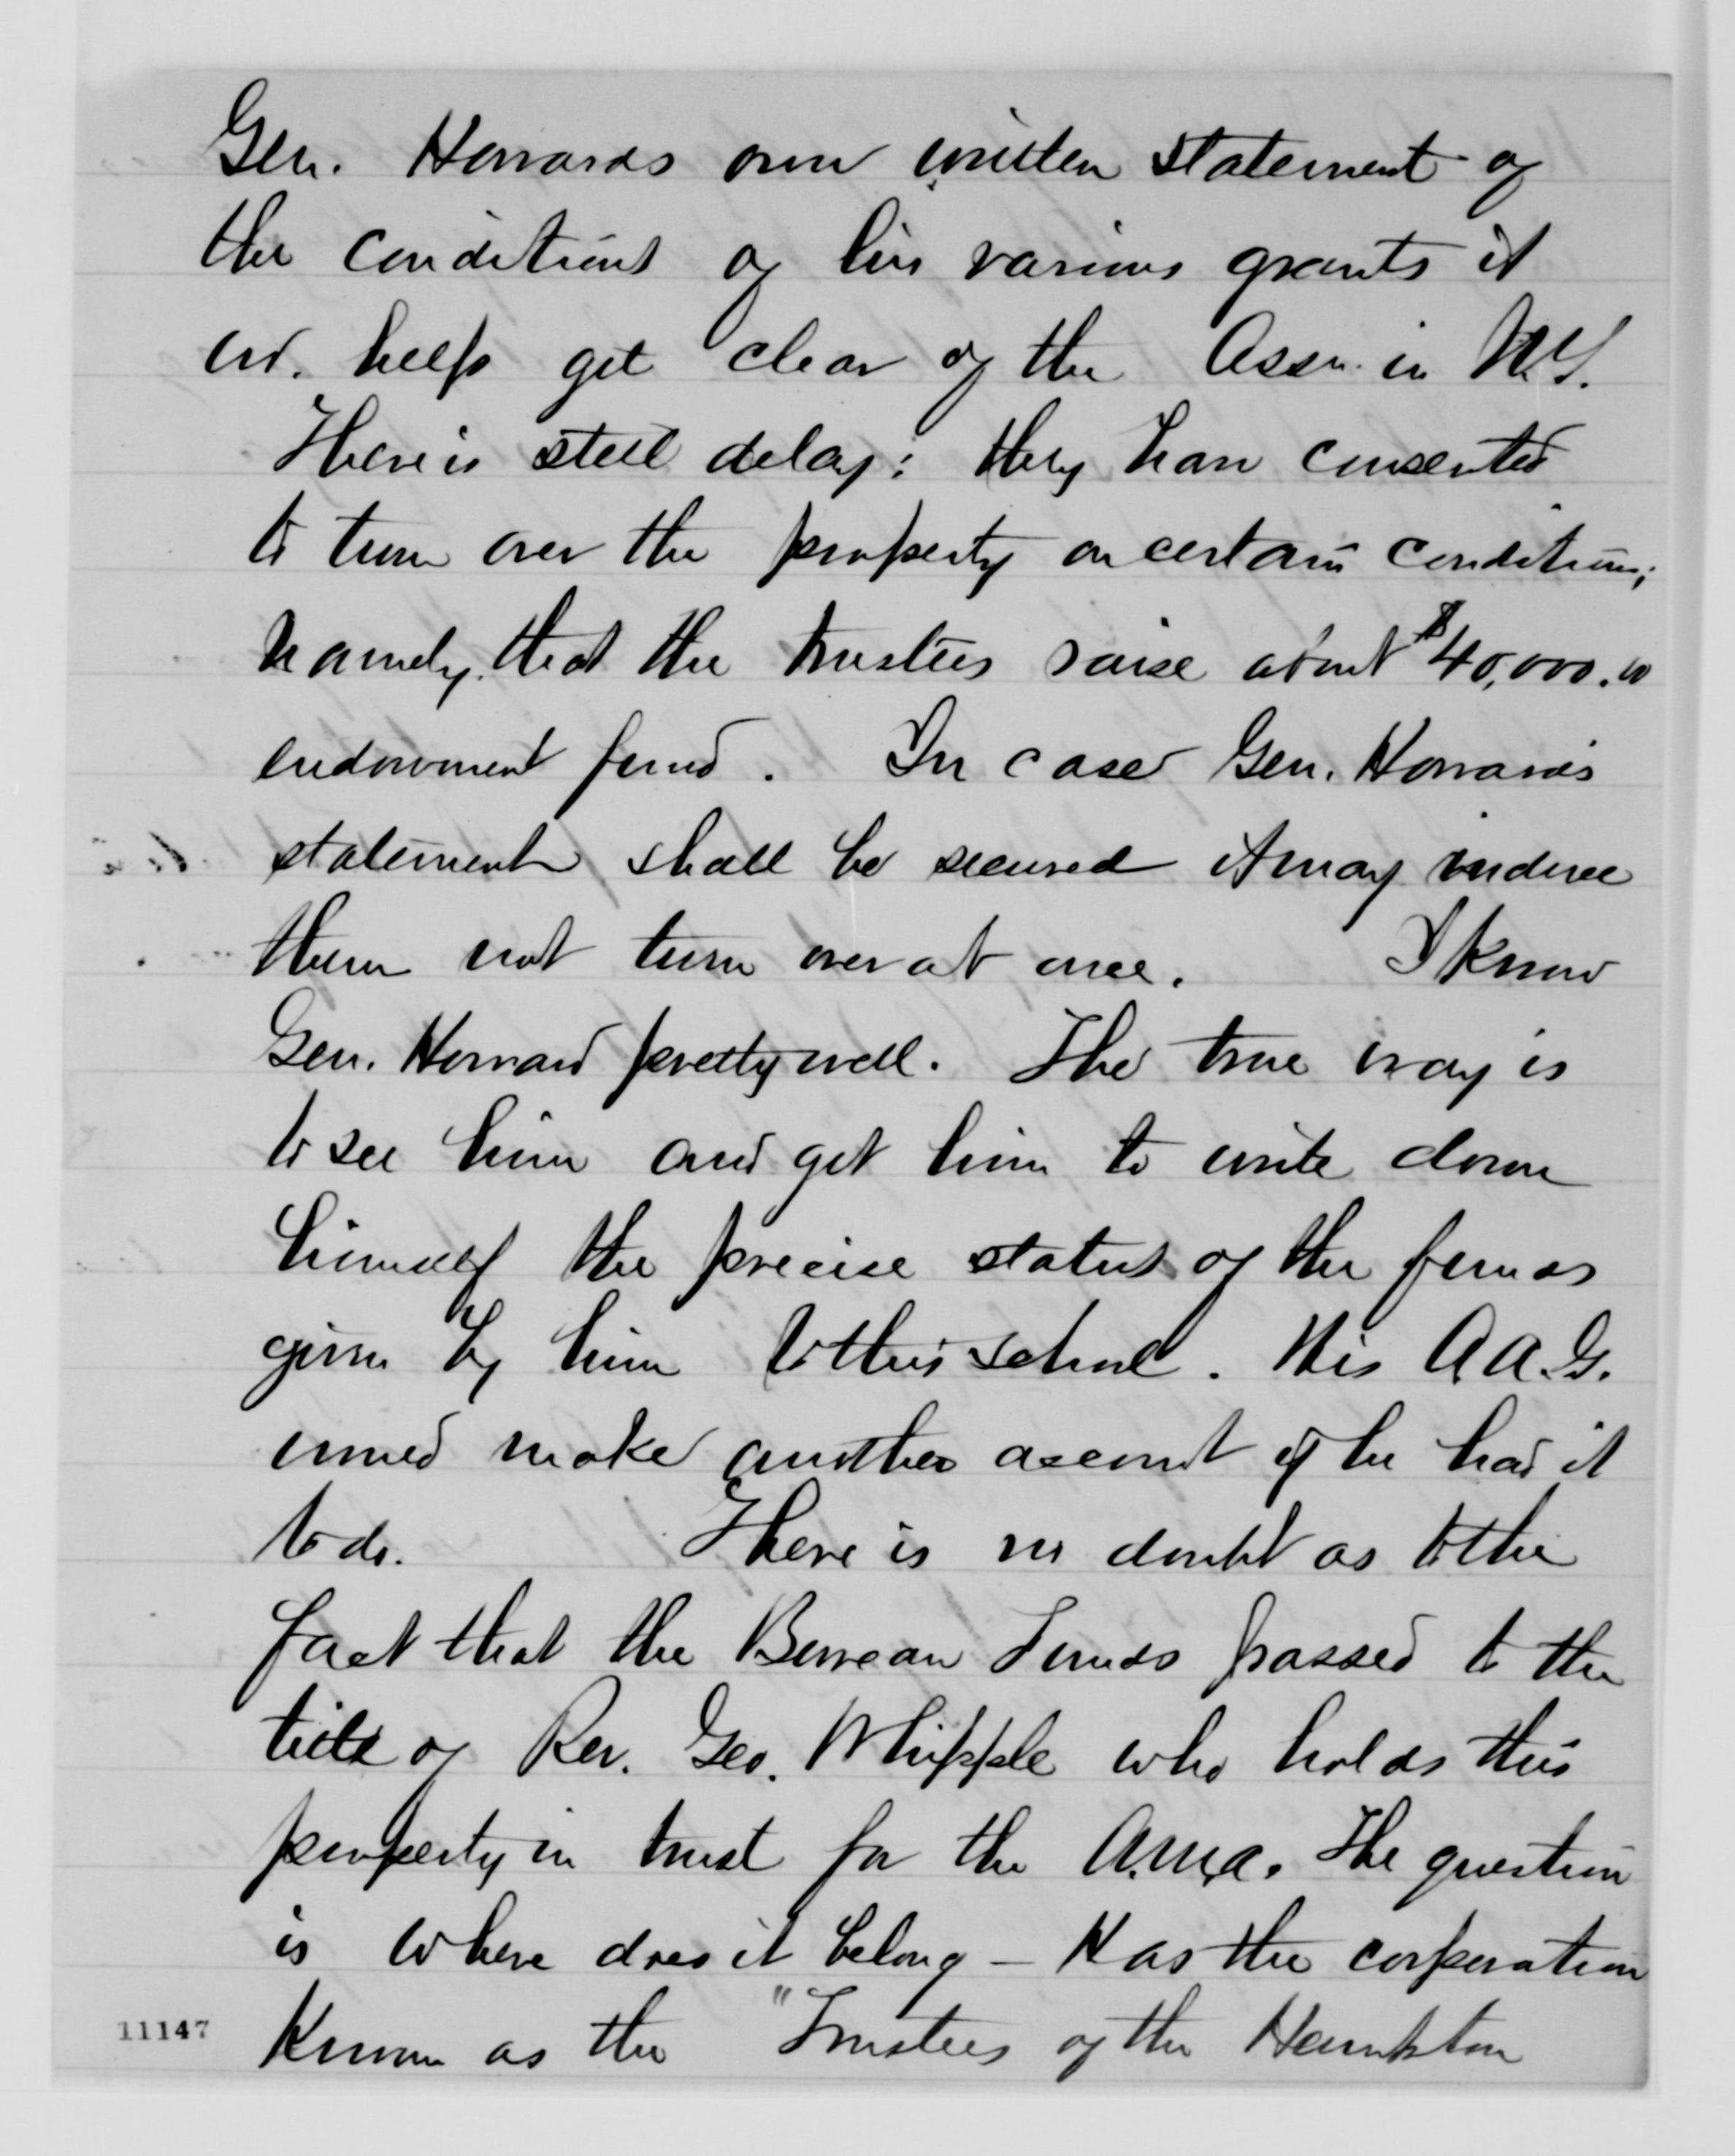 Gen. Howards own written statement of
the conditions of his various grants it
wd. help get clear of the Assn. in N.Y.
There is still delay: they have consented
to turn over the property on certain conditions;
namely, that the trustees raise about $40,000.00
endowment fund. In case Gen. Howards
statement shall be secured it may induce
them not turn over at once. I know
Gen. Howard pretty well. The true way is
to see him and get him to write down
himself the precise status of the funds
given by him to this school. His A.A.G.
would make another account if he had it
to do. There is no doubt as to the
fact that the Bureau Funds passed to the
title of Rev. Geo. Whipple who holds this
property in trust for the A.M.A. The question
is where does it belong - Has the corporation
Known as the "Trustees of the Hampton
11147